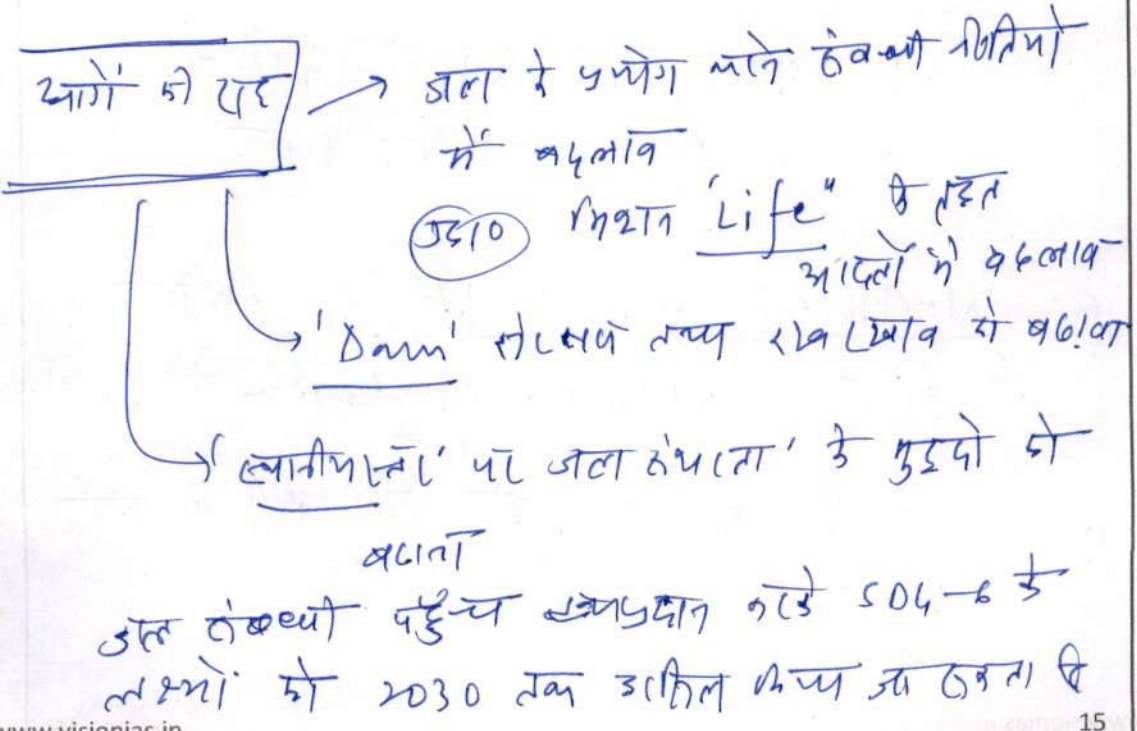 आगे की राह → जल के प्रयोग करने संबंधी नीतियों
में बदलाव
उदा० मिशन "Life" के तहत
आदतों में बदलाव
→ 'Dam' तथा रखरखाव को बढ़ावा
→ 'स्थानीय स्तर' पर जल के मुद्दों को
जल संबंधी पहुँच प्रदान करके SDG-6 के
लक्ष्यों को 2030 तक हासिल किया जा सकता है
www.visionias.in
15